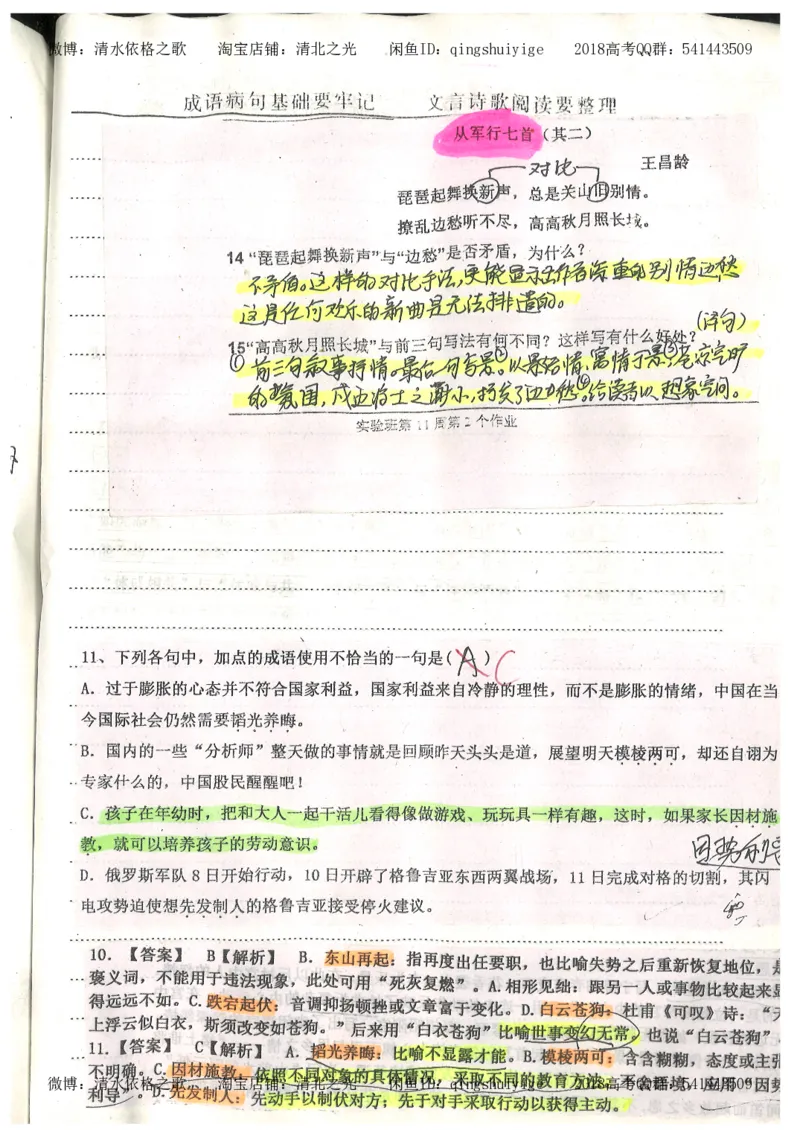 微博：清水依格之歌 淘宝店铺：清北之光 闲鱼ID：qingshuiyige 2018高考QQ群：541443509
成语病句基础要牢记 文言诗歌阅读要整理
从军行七首（其二）
对比
王昌龄
琵琶起舞换新声，总是关山旧别情。
撩乱边愁听不尽，高高秋月照长城。
14“琵琶起舞换新声”与“边愁”是否矛盾，为什么？
不矛盾。这样的对比手法，更能显示出作者深重的别情边愁
这是任何欢乐的新曲是无法排遣的。
15“高高秋月照长城”与前三句写法有何不同？这样写有什么好处？
①前三句叙事抒情。最后一句写景。②以景结情，寓情于景，③
的氛围，戍边将士之渺小，抒发了边愁。④给读者以想象空间。
实验班第11周第2个作业
11、下列各句中，加点的成语使用不恰当的一句是（A）C
A．过于膨胀的心态并不符合国家利益，国家利益来自冷静的理性，而不是膨胀的情绪，中国在当
今国际社会仍然需要韬光养晦。
B．国内的一些“分析师”整天做的事情就是回顾昨天头头是道，展望明天模棱两可，却还自诩为
专家什么的，中国股民醒醒吧！
C．孩子在年幼时，把和大人一起干活儿看得像做游戏、玩玩具一样有趣，这时，如果家长因材施
教，就可以培养孩子的劳动意识。
因势利导
D．俄罗斯军队8日开始行动，10日开辟了格鲁吉亚东西两翼战场，11日完成对格的切割，其闪
电攻势迫使想先发制人的格鲁吉亚接受停火建议。
10．【答案】 B【解析】 B．东山再起：指再度出任要职，也比喻失势之后重新恢复地位，是
褒义词，不能用于违法现象，此处可用“死灰复燃”。A.相形见绌：跟另一人或事物比较起来显
得远远不如。C.跌宕起伏：音调抑扬顿挫或文章富于变化。D.白云苍狗：杜甫《可叹》诗：“天
上浮云似白衣，斯须改变如苍狗。”后来用“白衣苍狗”比喻世事变幻无常。也说“白云苍狗”
11．【答案】 C【解析】 A．韬光养晦：比喻不显露才能。B.模棱两可：含含糊糊，态度或主张
不明确。C.因材施教：依照不同对象的具体情况，采取不同的教育方法。不合语境，应用“因势
微博：清水依格之歌 淘宝店铺：清北之光 闲鱼ID：qingshuiyige 2018高考QQ群：541443509
利导”。D.先发制人：先动手以制伏对方；先于对手采取行动以获得主动。